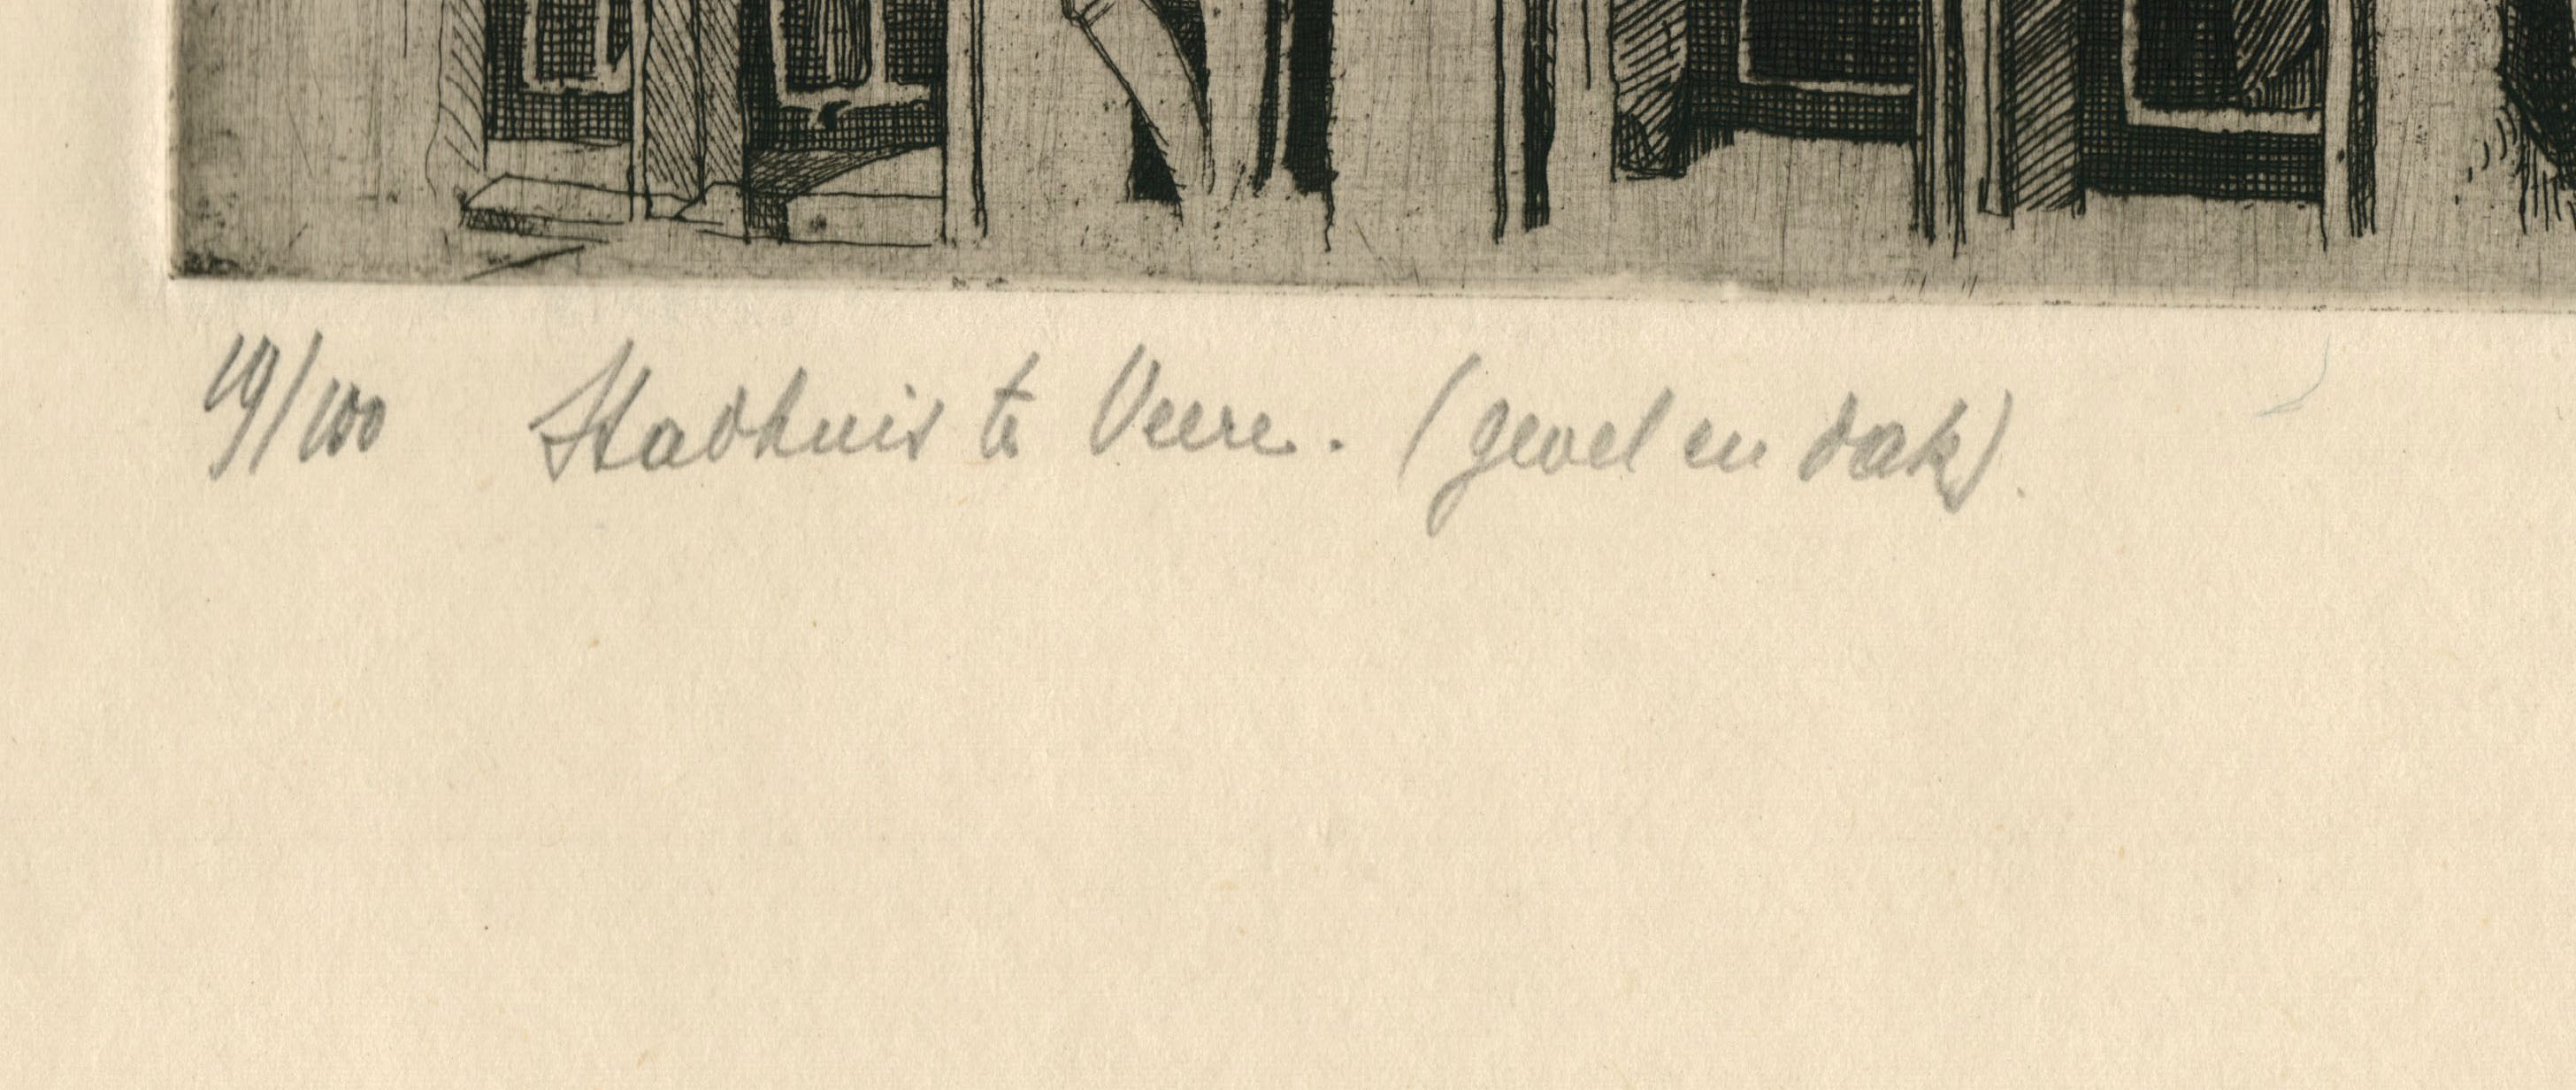 19/100 Stadhuis te Veere. (gevel en dak).